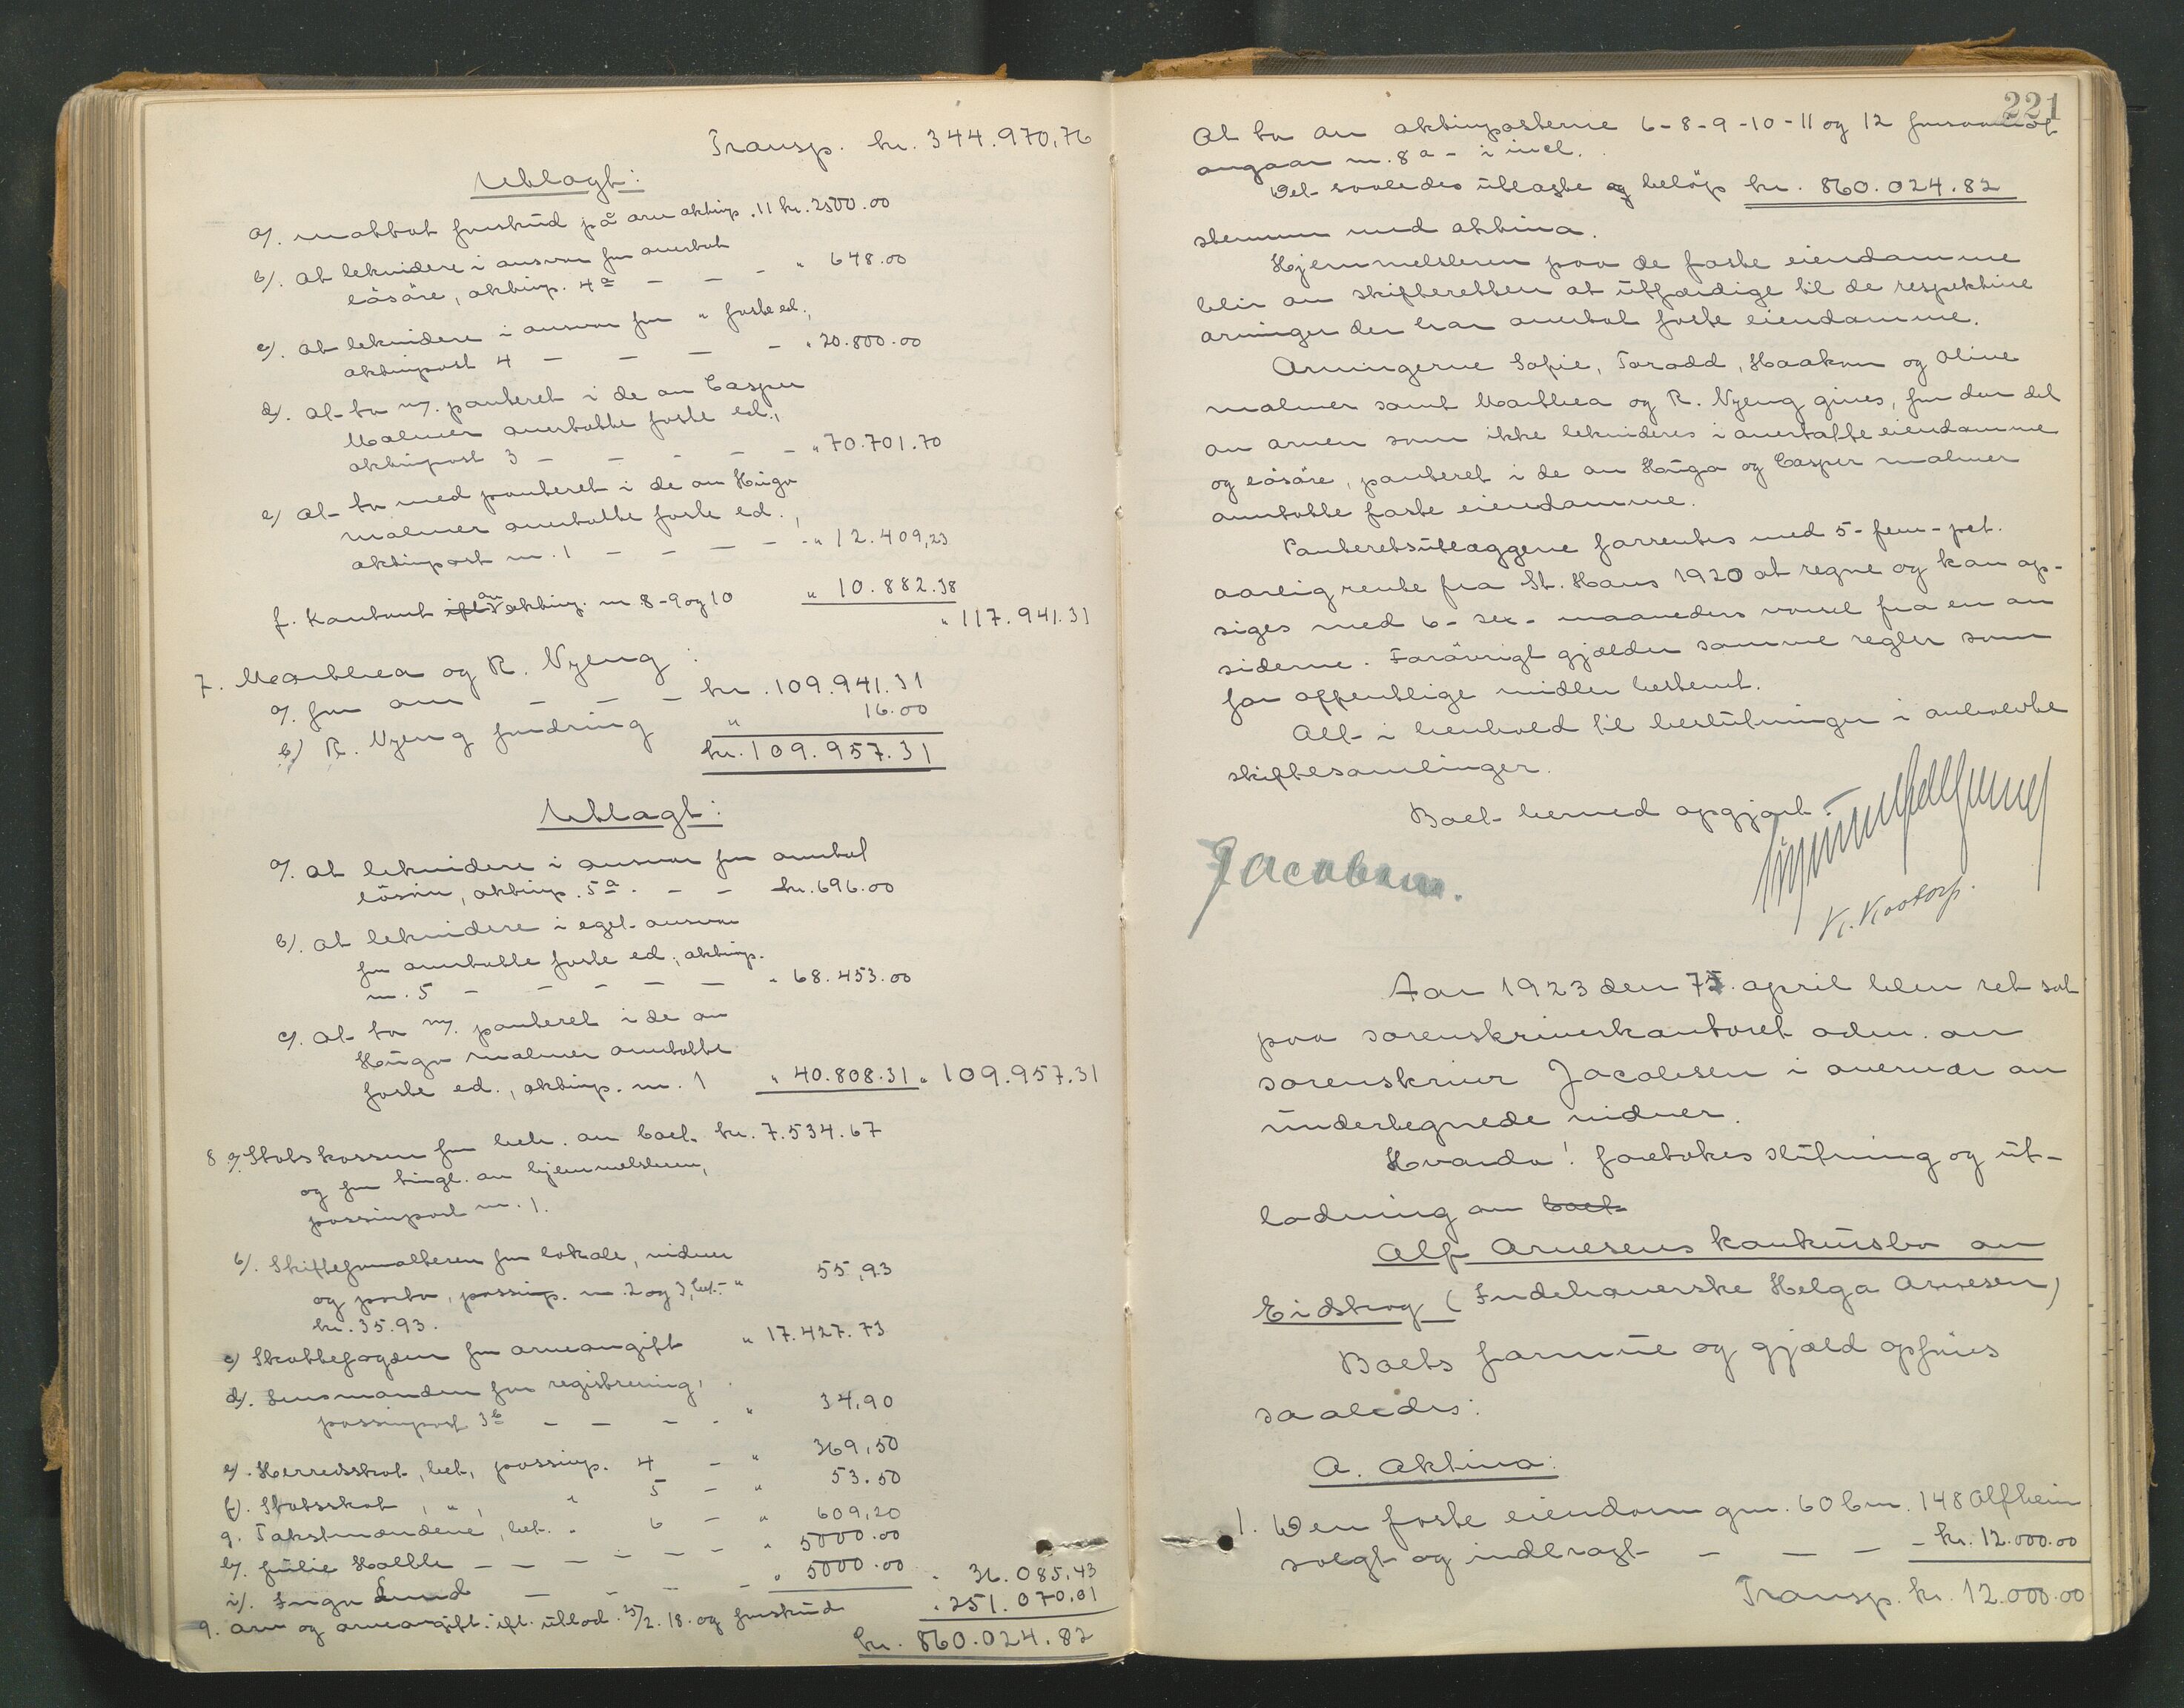 Transp. kr. 344.970,76
Utlagt:
a/. Mottat forskud på arv aktivp. 11 kr. 2500.00
b/. At likvidere i ansvar for overtat
løsøre, aktivp. 4a - - - " 648.00
c/. At likvidere i ansvar for " faste ed.,
aktivpost 4 - - - - " 20.800.00
d/. At ta m/. panteret i de av Casper
Malmer overtatte faste ed.,
aktivpost 3 - - - - - " 70.701.70
e/ At ta med panteret i de av Hugo
Malmer overtatte faste ed.,
aktivpost nr. 1 - - - - " 12.409,23
f. Kontant av aktivp. nr 8-9 og 10 " 10.882.38
" 117.941.31
7. Marthea og R. Nyeng:
a/. for arv - - - kr. 109.941.31
b/ R. Nyeng fordring " 16.00
kr. 109.957.31
Utlagt:
a/. At likvidere i ansvar for overtat
løsøre, aktivp. 5a. - - kr. 696.00
b/. At likvidere i eget ansvar
for overtatte faste ed., aktivp.
nr. 5 - - - - - " 68.453.00
c/. At ta m/. panteret i de av
Hugo Malmer overtatte
faste ed., aktivp. nr. 1 " 40.808.31 " 109.957.31
8 a/ Statskassen for beh. av boet kr. 7.534.67
og for tingl. av hjemmelsbrev,
passivpost nr. 1.
b/. Skifteforvalteren for lokale, vidner
og porto, passivp. nr. 2 og 3, bet. " 55,93
kr. 35.93.
c/ Skattefogden for arveavgift " 17.427.73
d/. Lensmanden for registrering,
passivpost 3b - - - - " 34,90
e/. Herredsskat, bet, passivp. 4 - " 369,50
f/. Statsskat, ", " 5 - " 53.50
g. Takstmændene, bet. " 6 - " 609,20
h/. Julie Holtte - - - - - - " 5000.00
i/. Inga Lund - - - - " 5000.00 " 36.085,43
9. Arv og arveavgift ift. utlod. 25/2.18. og forskud " 251.070,01
kr. 860.024.82
221
At ta av aktivposterne 6-8-9-10-11 og 12 forsaavidt
angaar nr. 8a - i incl.
Det saaledes utlagte beløp kr. 860.024.82
stemmer med aktiva.
Hjemmelsbrev paa de faste eiendomme
blir av skifteretten at utfærdige til de respektive
arvinger der har overtat faste eiendomme.
Arvingerne Sofie, Torodd, Haakon og Oline
Malmer samt Marthea og R. Nyeng gives, for den del
av arven som ikke likvideres i overtatte eiendomme
og løsøre, panteret i de av Hugo og Casper Malmer
overtatte faste eiendomme.
Panteretsutlæggene forrentes med 5-fem-pct.
aarlig rente fra St. Hans 1920 at regne og kan op-
siges med 6-sex-maaneders varsel fra en av
siderne. Forøvrigt gjælder samme regler som
for offentlige midler bestemt.
Alt i henhold til beslutninger i avholdte
skiftesamlinger.
Boet hermed opgjort.
Jacobsen.
K. Kostorp.
Aar 1923 den 75. april blev ret sat
paa sorenskriverkontoret adm. av
sorenskriver Jacobsen i overvær av
undertegnede vidner.
Hvorda! foretokes slutning og ut-
lodning av boet
Alf Arnesens konkursbo av
Eidskog (Indehaverske Helga Arnesen)
Boets formue og gjæld opføres
saaledes:
A. Aktiva:
1. Den faste eiendom gnr. 60 bnr. 148 Alfheim
solgt og indbragt - - - - kr. 12.000.00
Transp. kr. 12.000.00